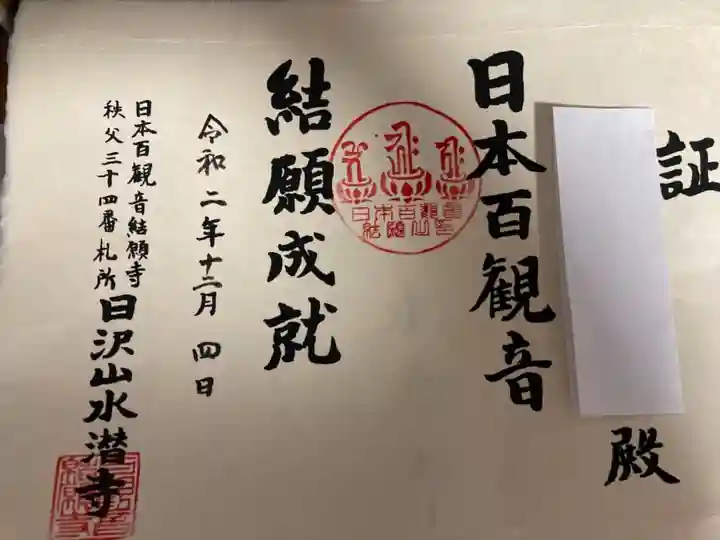 証
殿
日本百観音
結願成就
令和二年十二月四日
日本百観音結願寺
秩父三十四番札所
日沢山水潜寺